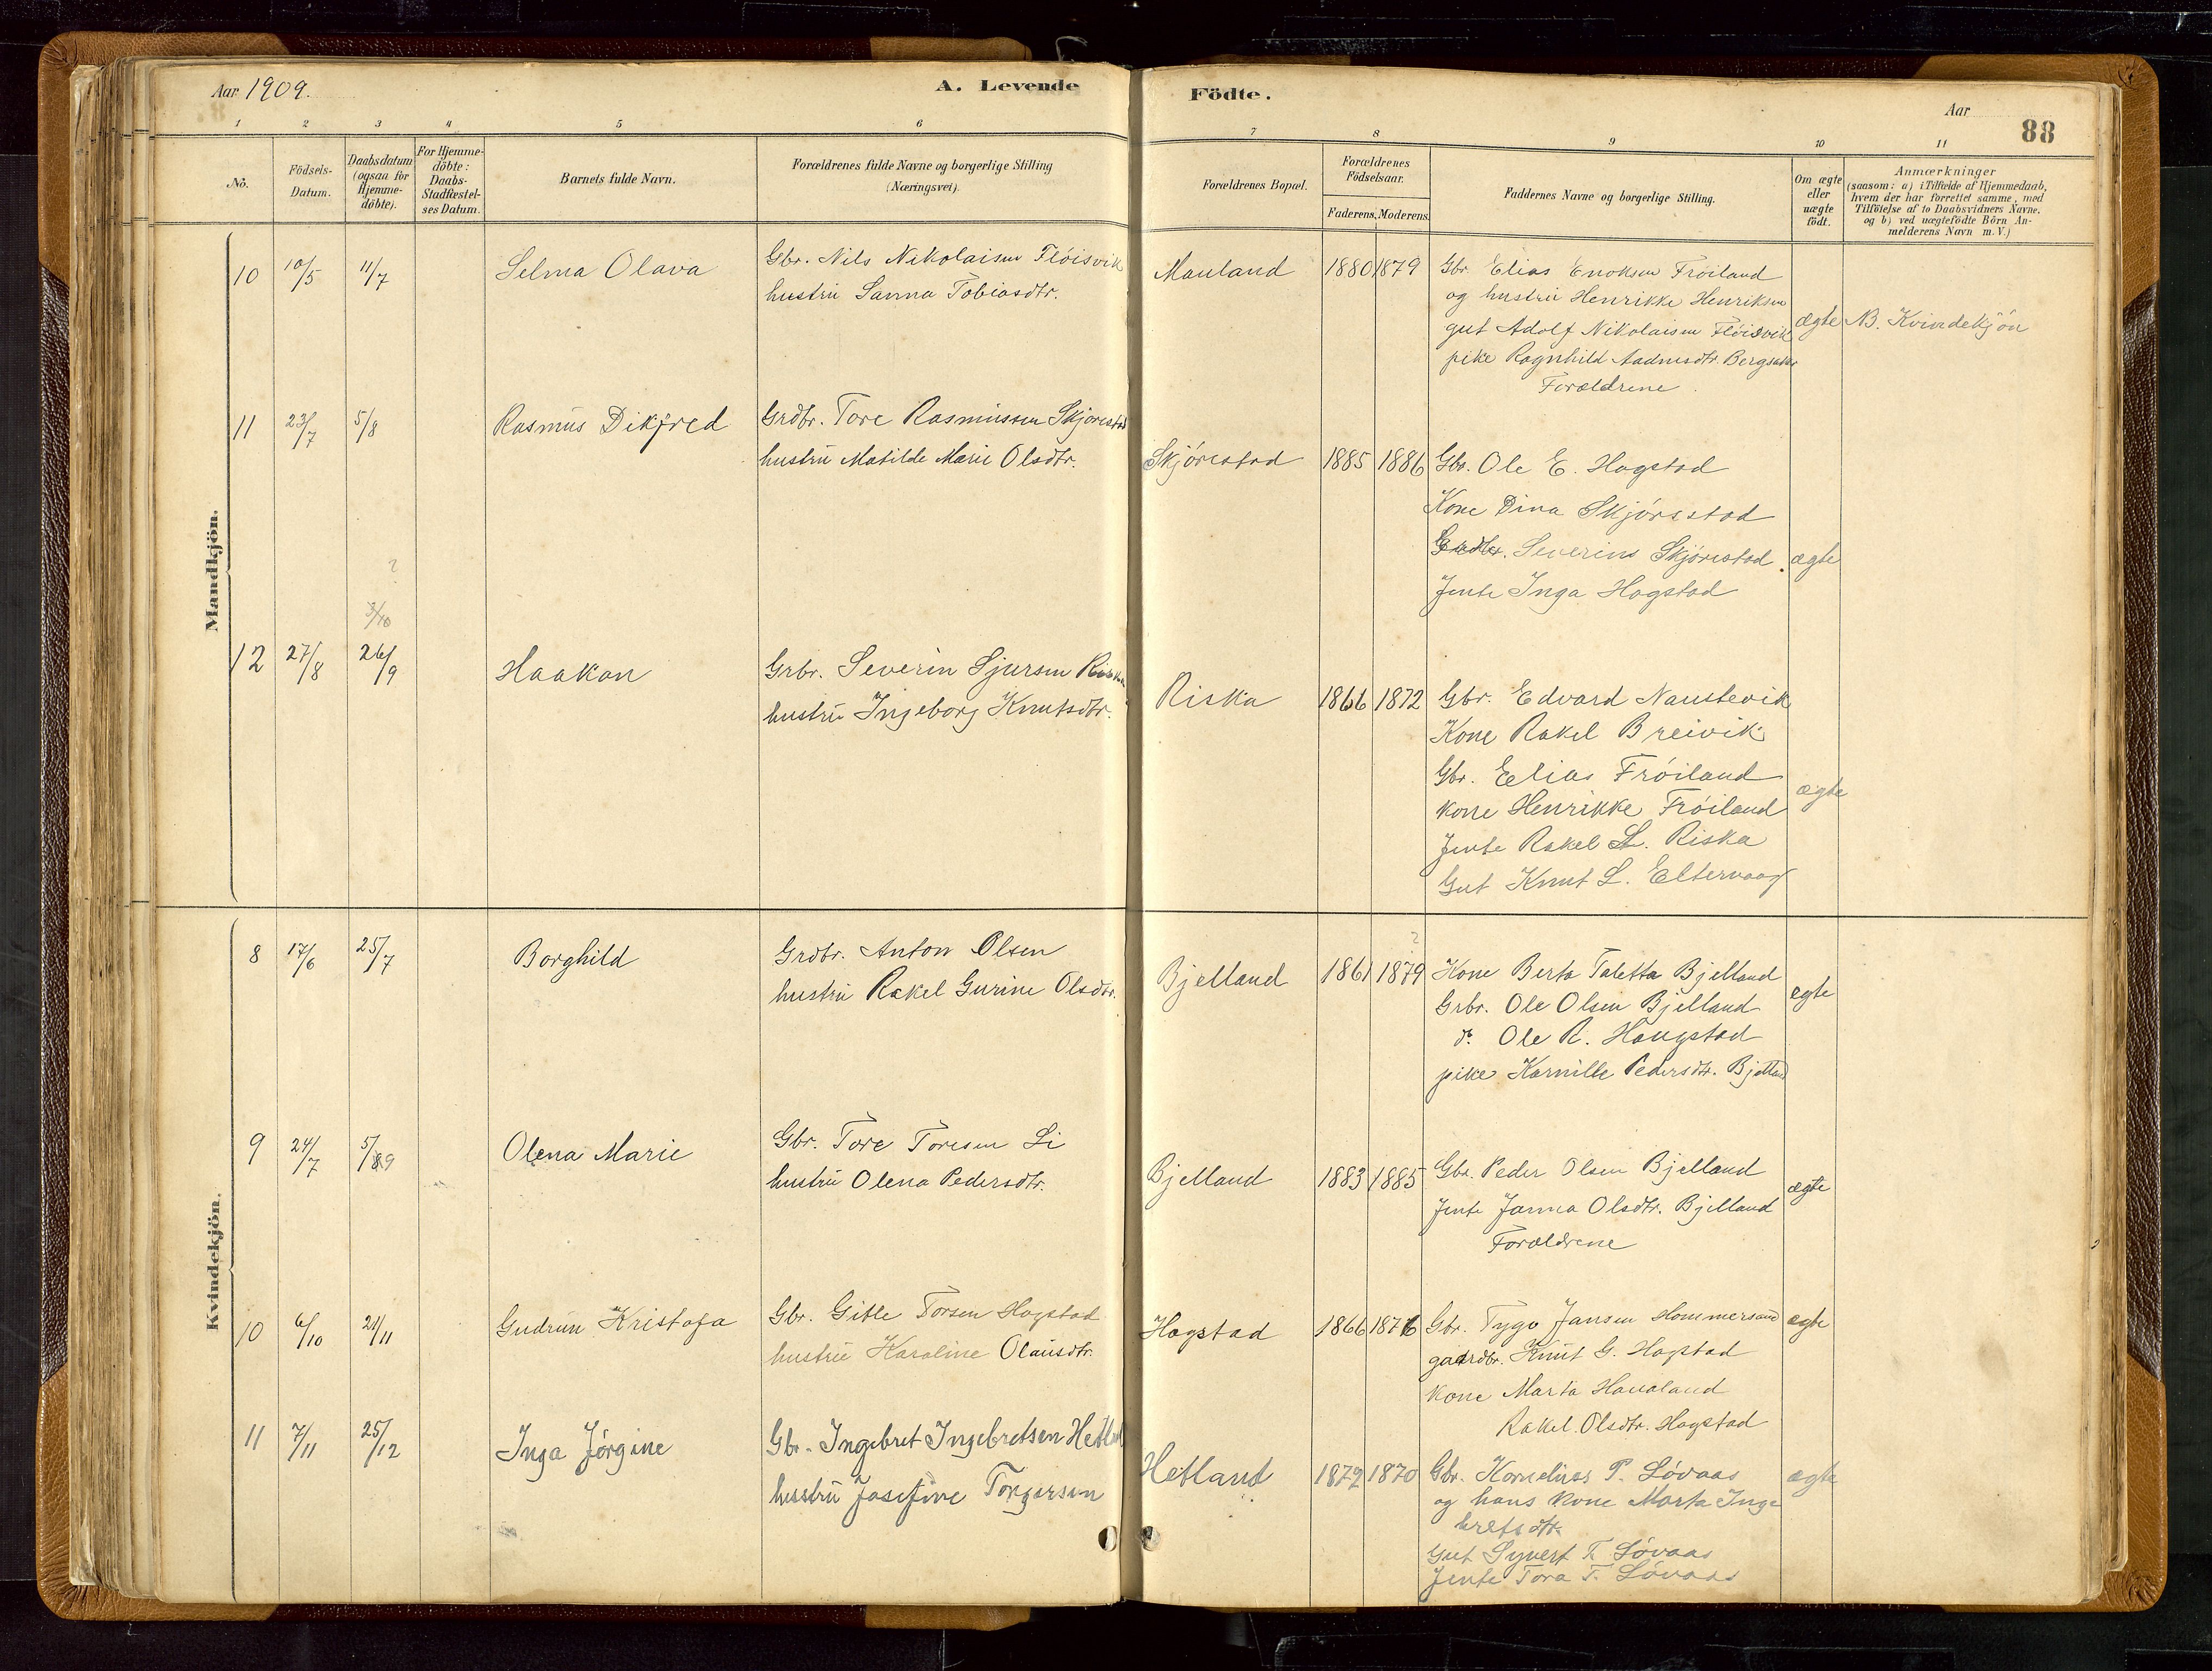 Aar 1909.
A. Levende
Födte.
Aar
88
1 2 3 4 5 6 7 8 9 10 11
No.
Födsels-
Datum.
Daabsdatum
(ogsaa for
Hjemme-
döbte).
For Hjemme-
döbte:
Daabs-
Stadfæstel-
ses Datum.
Barnets fulde Navn.
Forældrenes fulde Navne og borgerlige Stilling
(Næringsvei).
Forældrenes Bopæl.
Forældrenes
Födselsaar.
Faderens. Moderens.
Faddernes Navne og borgerlige Stilling.
Om ægte
eller
uægte
födt.
Anmærkninger
(saasom: a) i Tilfælde af Hjemmedaab,
hvem der har forrettet samme, med
Tilföielse af to Daabsvidners Navne.
og b) ved uægtefödte Börn An-
melderens Navn m. V.)
Mandkjön.
10 10/5 11/7 Selma Olava
Gbr. Nils Nikolaisen Flöisvik
hustru Sanna Tobiasdtr.
Mauland 1880 1879
Gbr. Elias Enoksen Fröiland
og hustru Henrikke Henriksen
gut Adolf Nikolaisen Flöisvik
pike Ragnhild Aadnesdtr. Bergsaker
Forældrene.
ægte NB. Kvindekjön
11 23/7 5/8 Rasmus Dikfred
Grdbr. Tore Rasmussen Skjörestad
hustru Matilde Marie Olsdtr.
Skjörestad 1885 1886
Gbr. Ole E. Hogstad
Kone Dina Skjörestad
Severins Skjörestad.
Jente Inga Hogstad
ægte
?
3/10
12 27/8 26/9 Haakon
Grbr. Severin Sjursen Riska
hustru Ingeborg Knutsdtr.
Riska 1866 1872
Gbr. Edvard Naustevik
Kone Rakel Breivik
Gbr. Elias Fröiland
kone Henrikke Fröiland
Jente Rakel S. Riska
Gut Knut L. Eltervaag
ægte
Kvindekjön.
8 17/6 25/7 Borghild
Grdbr. Anton Olsen
hustru Rakel Gurine Olsdtr.
Bjelland 1861 1879
?
Kone Berta Taletta Bjelland
Grbr. Ole Olsen Bjelland
do. Ole R. Haugstad
pike Kamille Pedersdtr. Bjelland
ægte
9 24/7 5/9 Olena Marie
Gbr. Tore Toresen Li
hustru Olena Pedersdtr.
Bjelland 1883 1885
Gbr. Peder Olsen Bjelland
Jente Janna Olsdtr. Bjelland
Forældrene
ægte
10 6/10 21/11 Gudrun Kristofa
Gbr. Gitle Torsen Hogstad
hustru Karoline Olausdtr.
Hogstad 1866 1876
Gbr. Tygo Jansen Hommersand
gaardbr. Knut G. Hogstad
kone Marta Haualand
Rakel Olsdtr. Hogstad
ægte
11 7/11 25/12 Inga Jörgine
Gbr. Ingebret Ingebretsen Hetland
hustru Josefine Torgersen
Hetland 1872 1870
Gbr. Kornelius P. Lövaas
og hans kone Marta Inge
bretsdtr.
Gut Syvert T. Lövaas
Jente Tora T. Lövaas
ægte